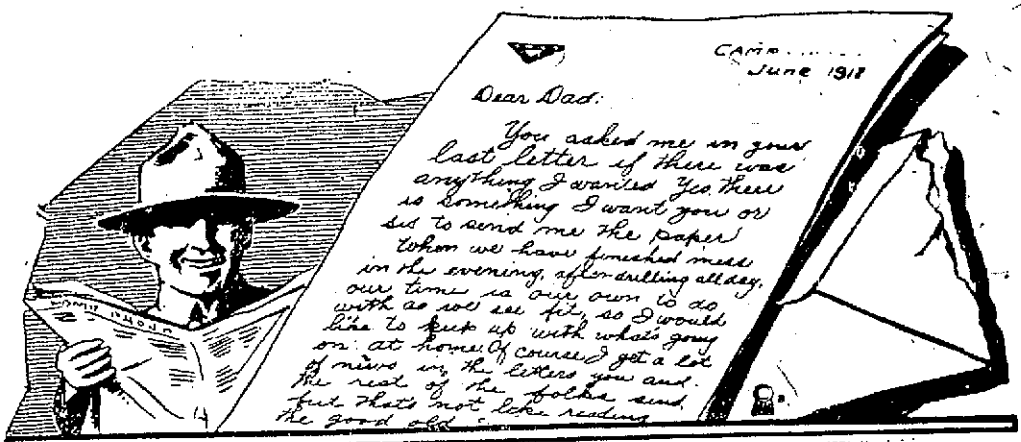 CAMP........
June 1918
Dear Dad:
You asked me in your
last letter if there was
anything I wanted Yes, there
is something I want you or
sis to send me the paper
When we have finished mess
in the evening, after drilling all day,
our time is our own to do
with as we see fit, so I would
like to keep up with what's going
on at home. Of course I get a lot
of news in the letters you and
the rest of the folks send,
but that's not like reading
the good old